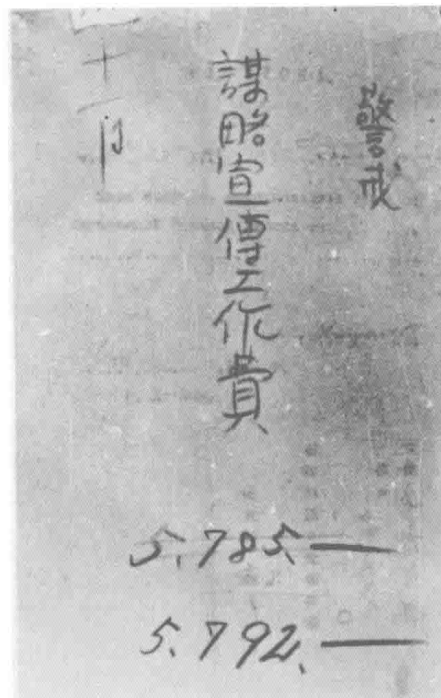 警戒
謀略宣傳工作費
十一月
5.785.—
5.792.—